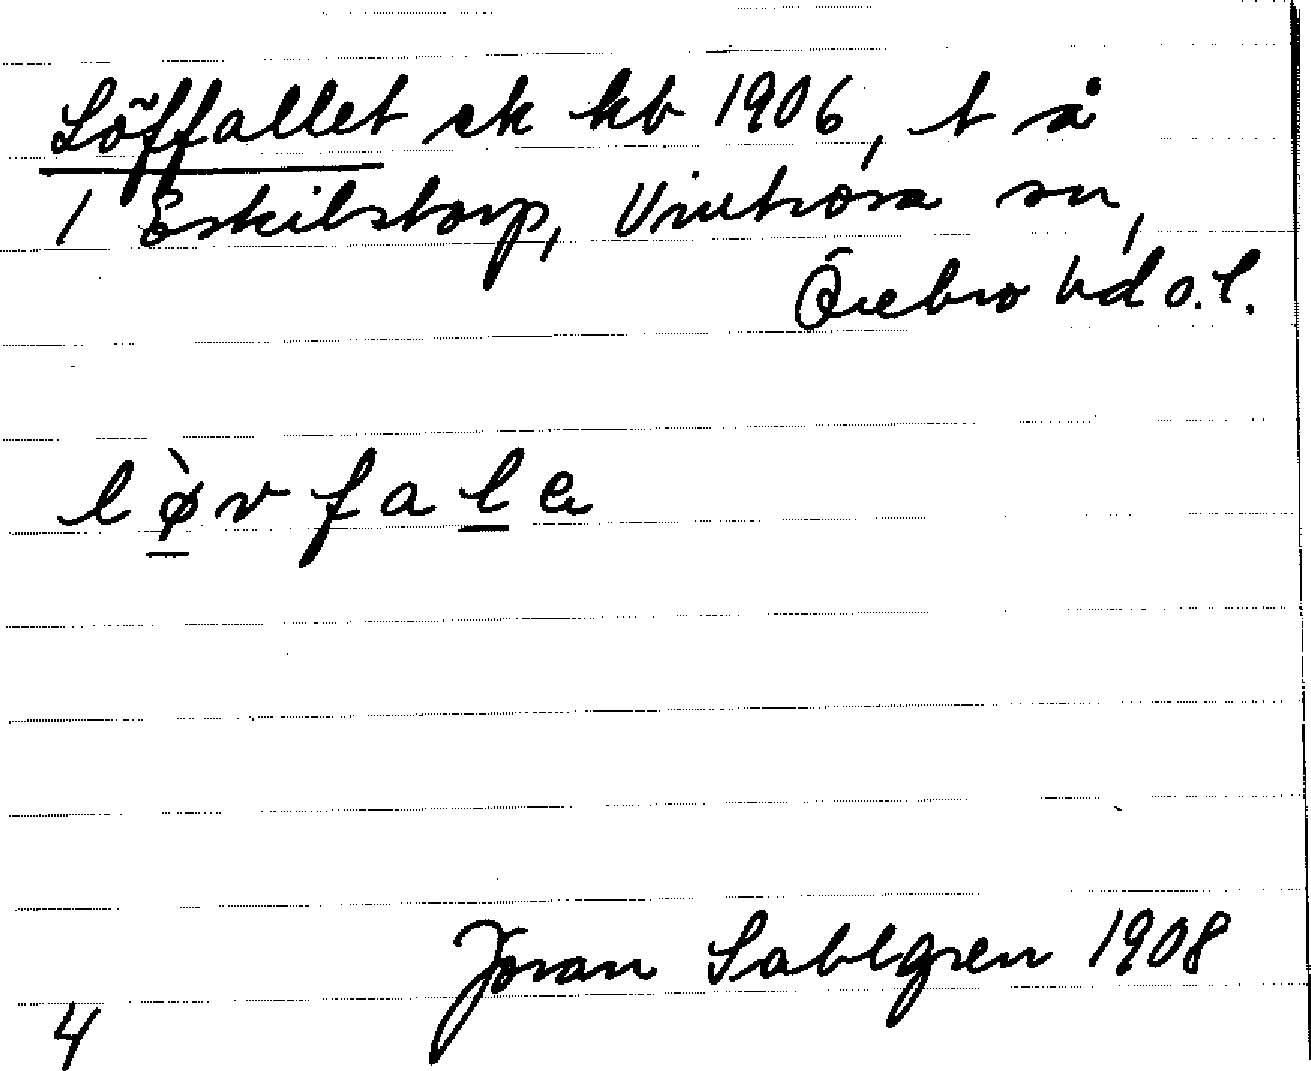 Löffallet ck kb 1906, t å
1 Eskilstorp, Vintrosa sn,
Örebro hd o. l.
lø̀vfale
Jöran Sahlgren 1908
4